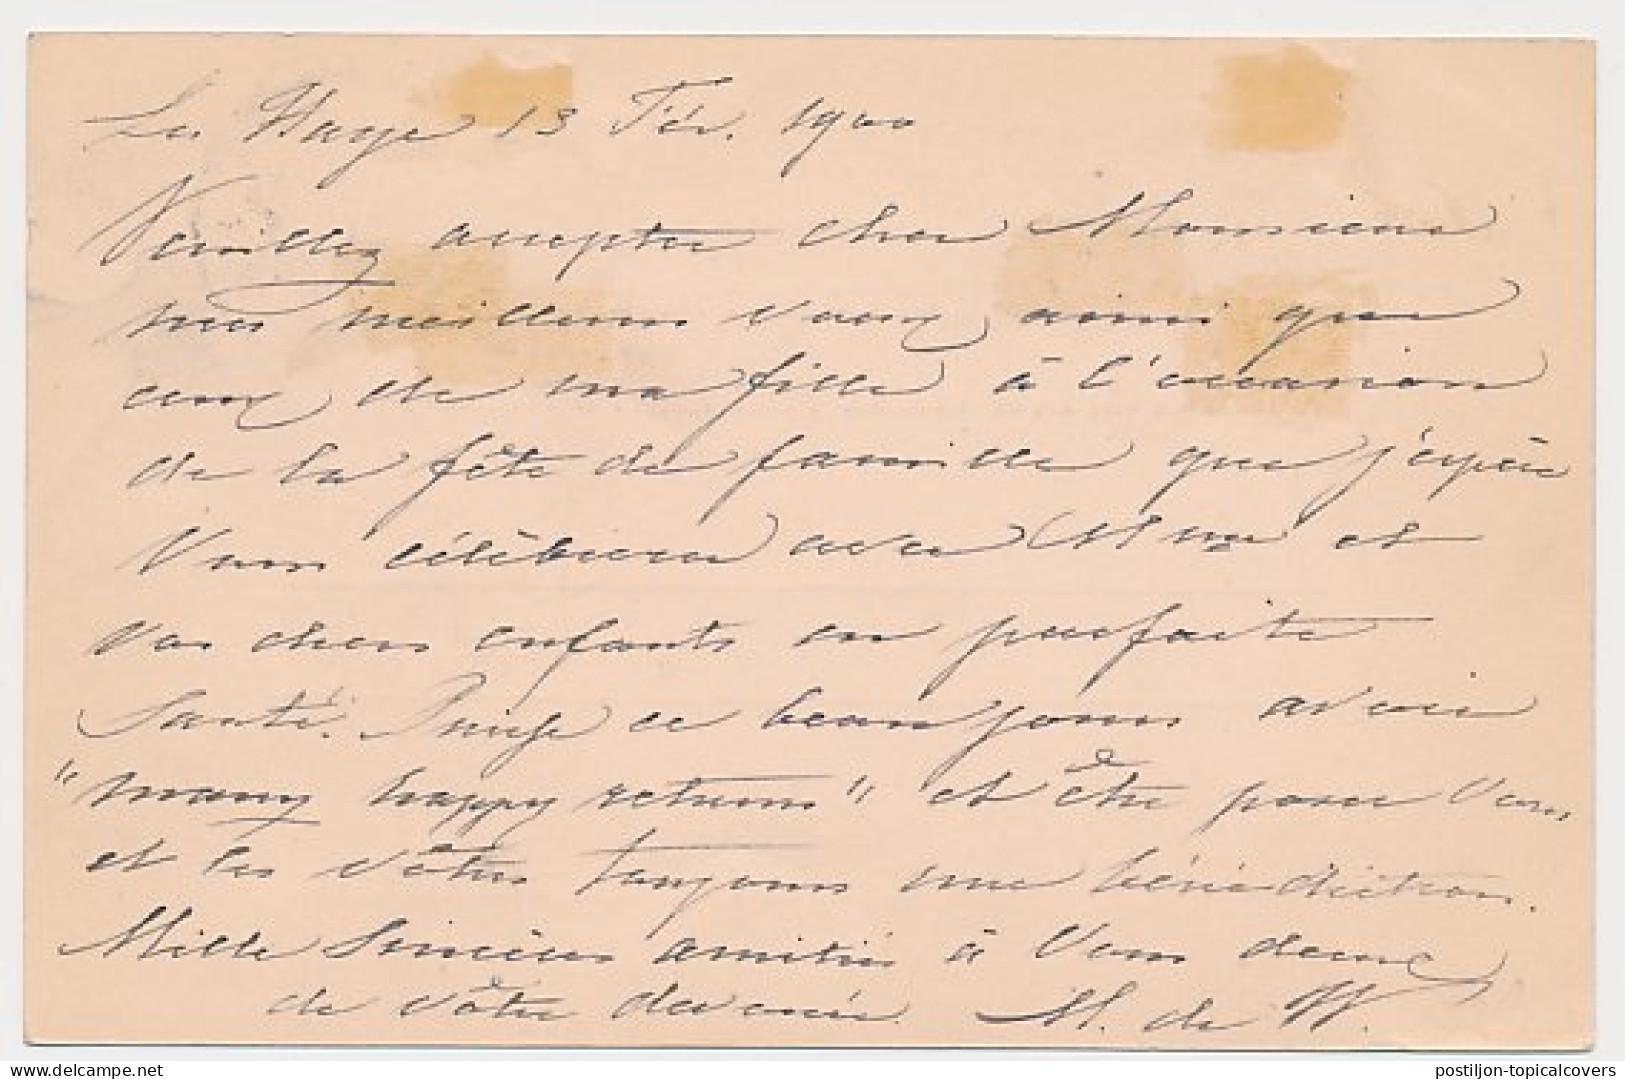 La Haye 13 Fév. 1900
Veuillez accepter cher Monsieur
mes meilleurs vœux ainsi que
ceux de ma fille à l'occasion
de la fête de famille que j'espère
Vous célèbrerez avec Mme et
Vos chers enfants en parfaite
Santé. Puisse ce beau jour avoir
"many happy returns" et être pour Vous
et les vôtres toujours une bénédiction.
Mille Sincères amitiés à Vous deux
de vôtre dévouée. M. de W.
postiljon-topicalcovers